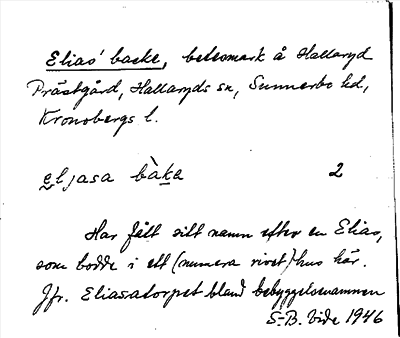 Elias' backe, betesmark å Hallaryd
Prästgård, Hallaryds sn, Sunnerbo hd,
Kronobergs l.
eljasa bàka 2
Har fått sitt namn efter en Elias,
som bodde i ett (numera rivet) hus här.
Jfr. Eliasatorpet bland bebyggelsenamnen
S-B. Vide 1946